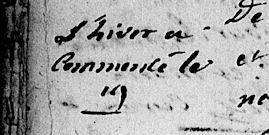 L'hiver a
Commencé le
19
De
et
no